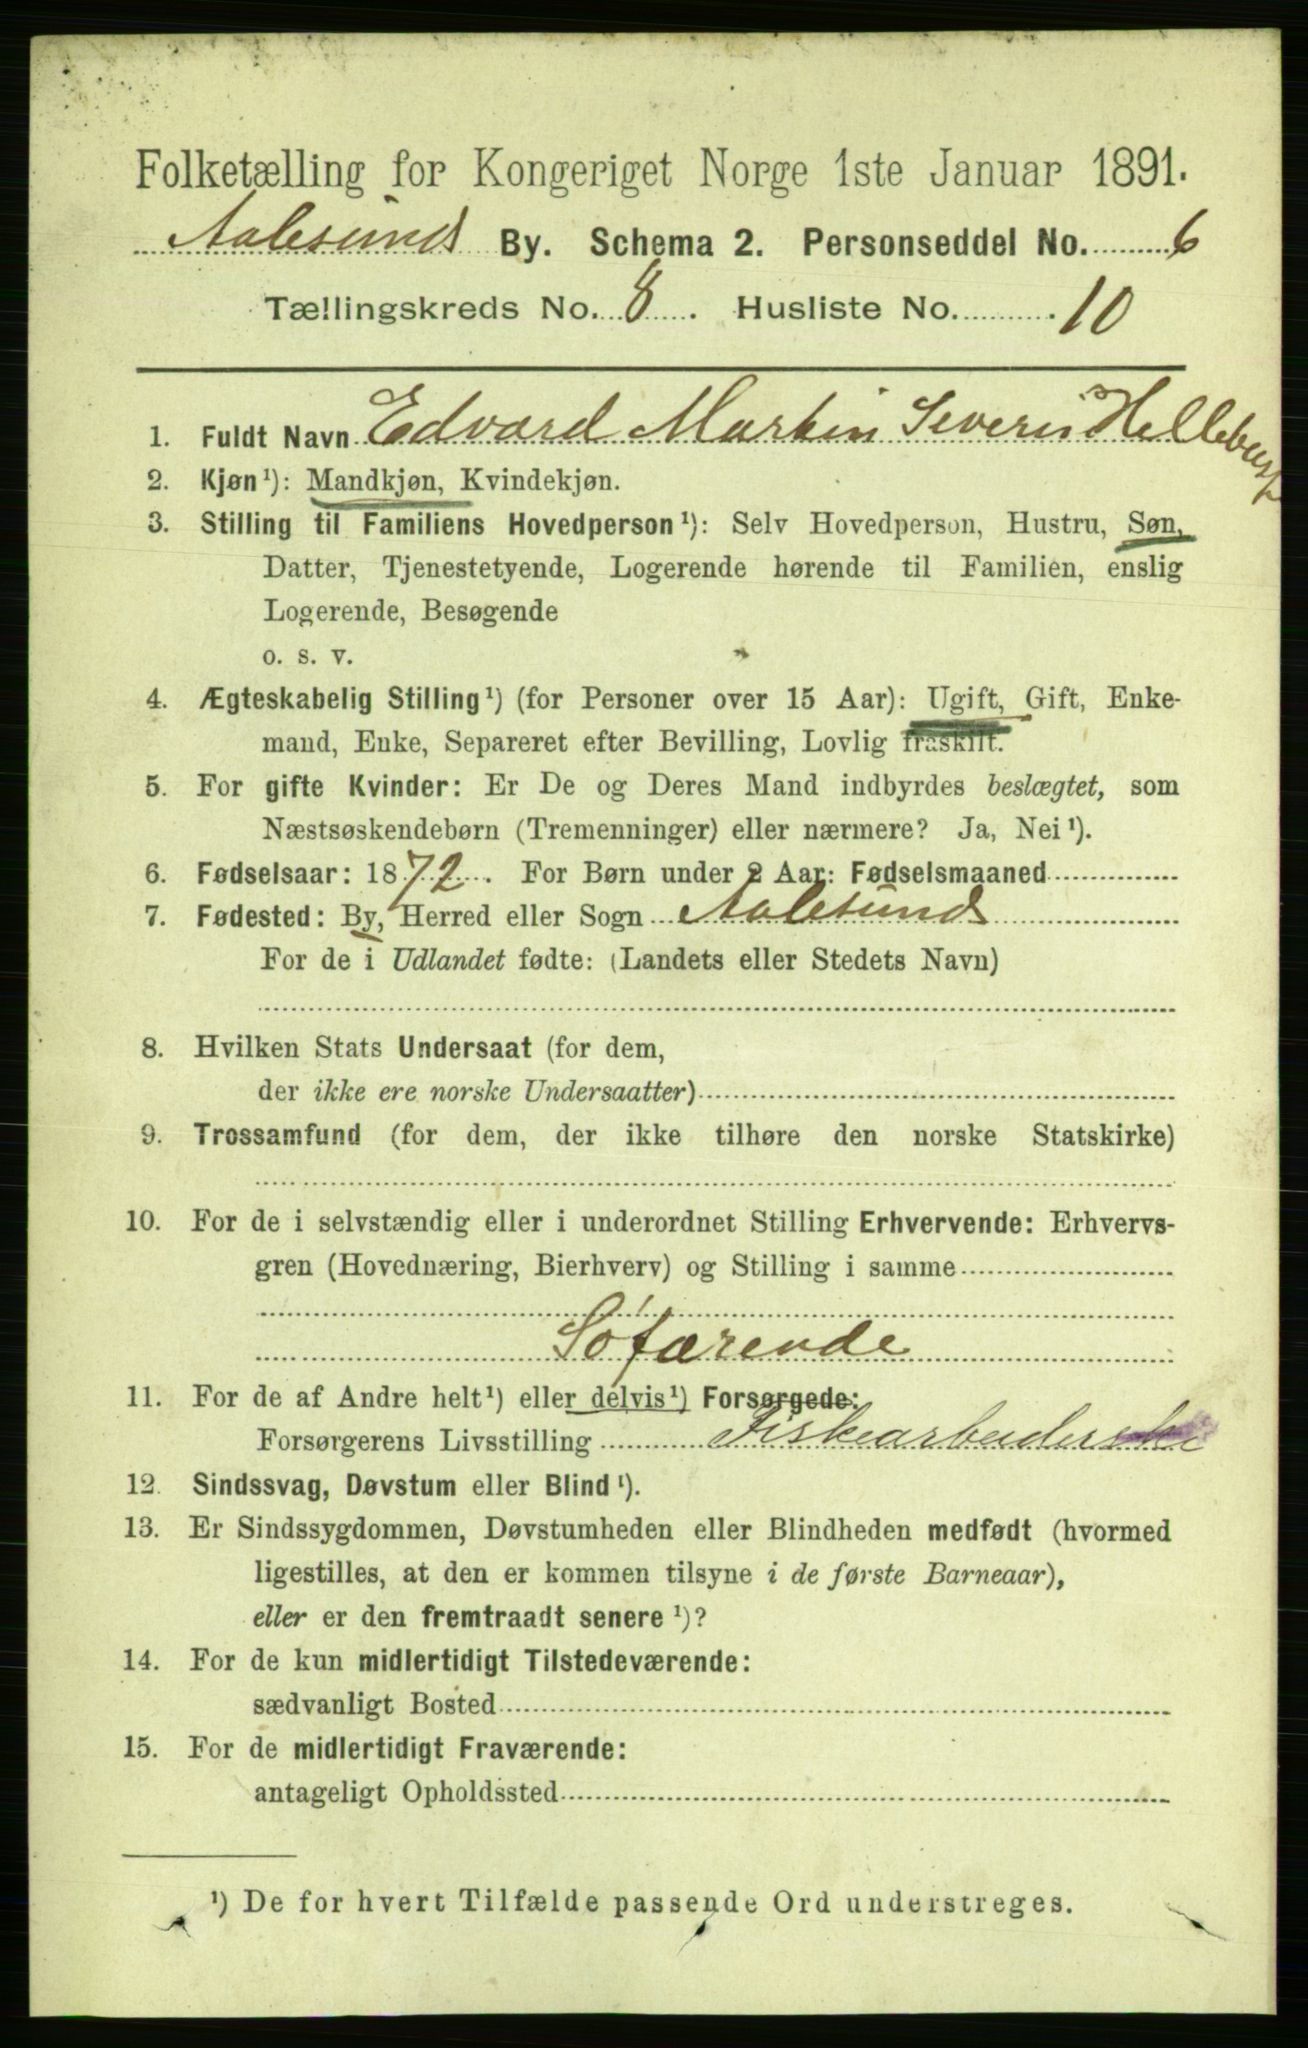 Folketælling for Kongeriget Norge 1ste Januar 1891.
Aalesunds By. Schema 2. Personseddel No. 6
Tællingskreds No. 8. Husliste No. 10
1. Fuldt Navn Edvard Martin Severin Hellebust
2. Kjøn ¹): Mandkjøn, Kvindekjøn.
3. Stilling til Familiens Hovedperson ¹): Selv Hovedperson, Hustru, Søn,
Datter, Tjenestetyende, Logerende hørende til Familien, enslig
Logerende, Besøgende
o. s. v.
4. Ægteskabelig Stilling ¹) (for Personer over 15 Aar): Ugift, Gift, Enke-
mand, Enke, Separeret efter Bevilling, Lovlig fraskilt.
5. For gifte Kvinder: Er De og Deres Mand indbyrdes beslægtet, som
Næstsøskendebørn (Tremenninger) eller nærmere? Ja, Nei ¹).
6. Fødselsaar: 1872. For Børn under 2 Aar: Fødselsmaaned
7. Fødested: By, Herred eller Sogn Aalesund
For de i Udlandet fødte: (Landets eller Stedets Navn)
8. Hvilken Stats Undersaat (for dem,
der ikke ere norske Undersaatter)
9. Trossamfund (for dem, der ikke tilhøre den norske Statskirke)
10. For de i selvstændig eller i underordnet Stilling Erhvervende: Erhvervs-
gren (Hovednæring, Bierhverv) og Stilling i samme
Søfarende
11. For de af Andre helt ¹) eller delvis ¹) Forsørgede:
Forsørgerens Livsstilling Fiskearbeiderske
12. Sindssvag, Døvstum eller Blind ¹).
13. Er Sindssygdommen, Døvstumheden eller Blindheden medfødt (hvormed
ligestilles, at den er kommen tilsyne i de første Barneaar),
eller er den fremtraadt senere ¹)?
14. For de kun midlertidigt Tilstedeværende:
sædvanligt Bosted
15. For de midlertidigt Fraværende:
antageligt Opholdssted
¹) De for hvert Tilfælde passende Ord understreges.